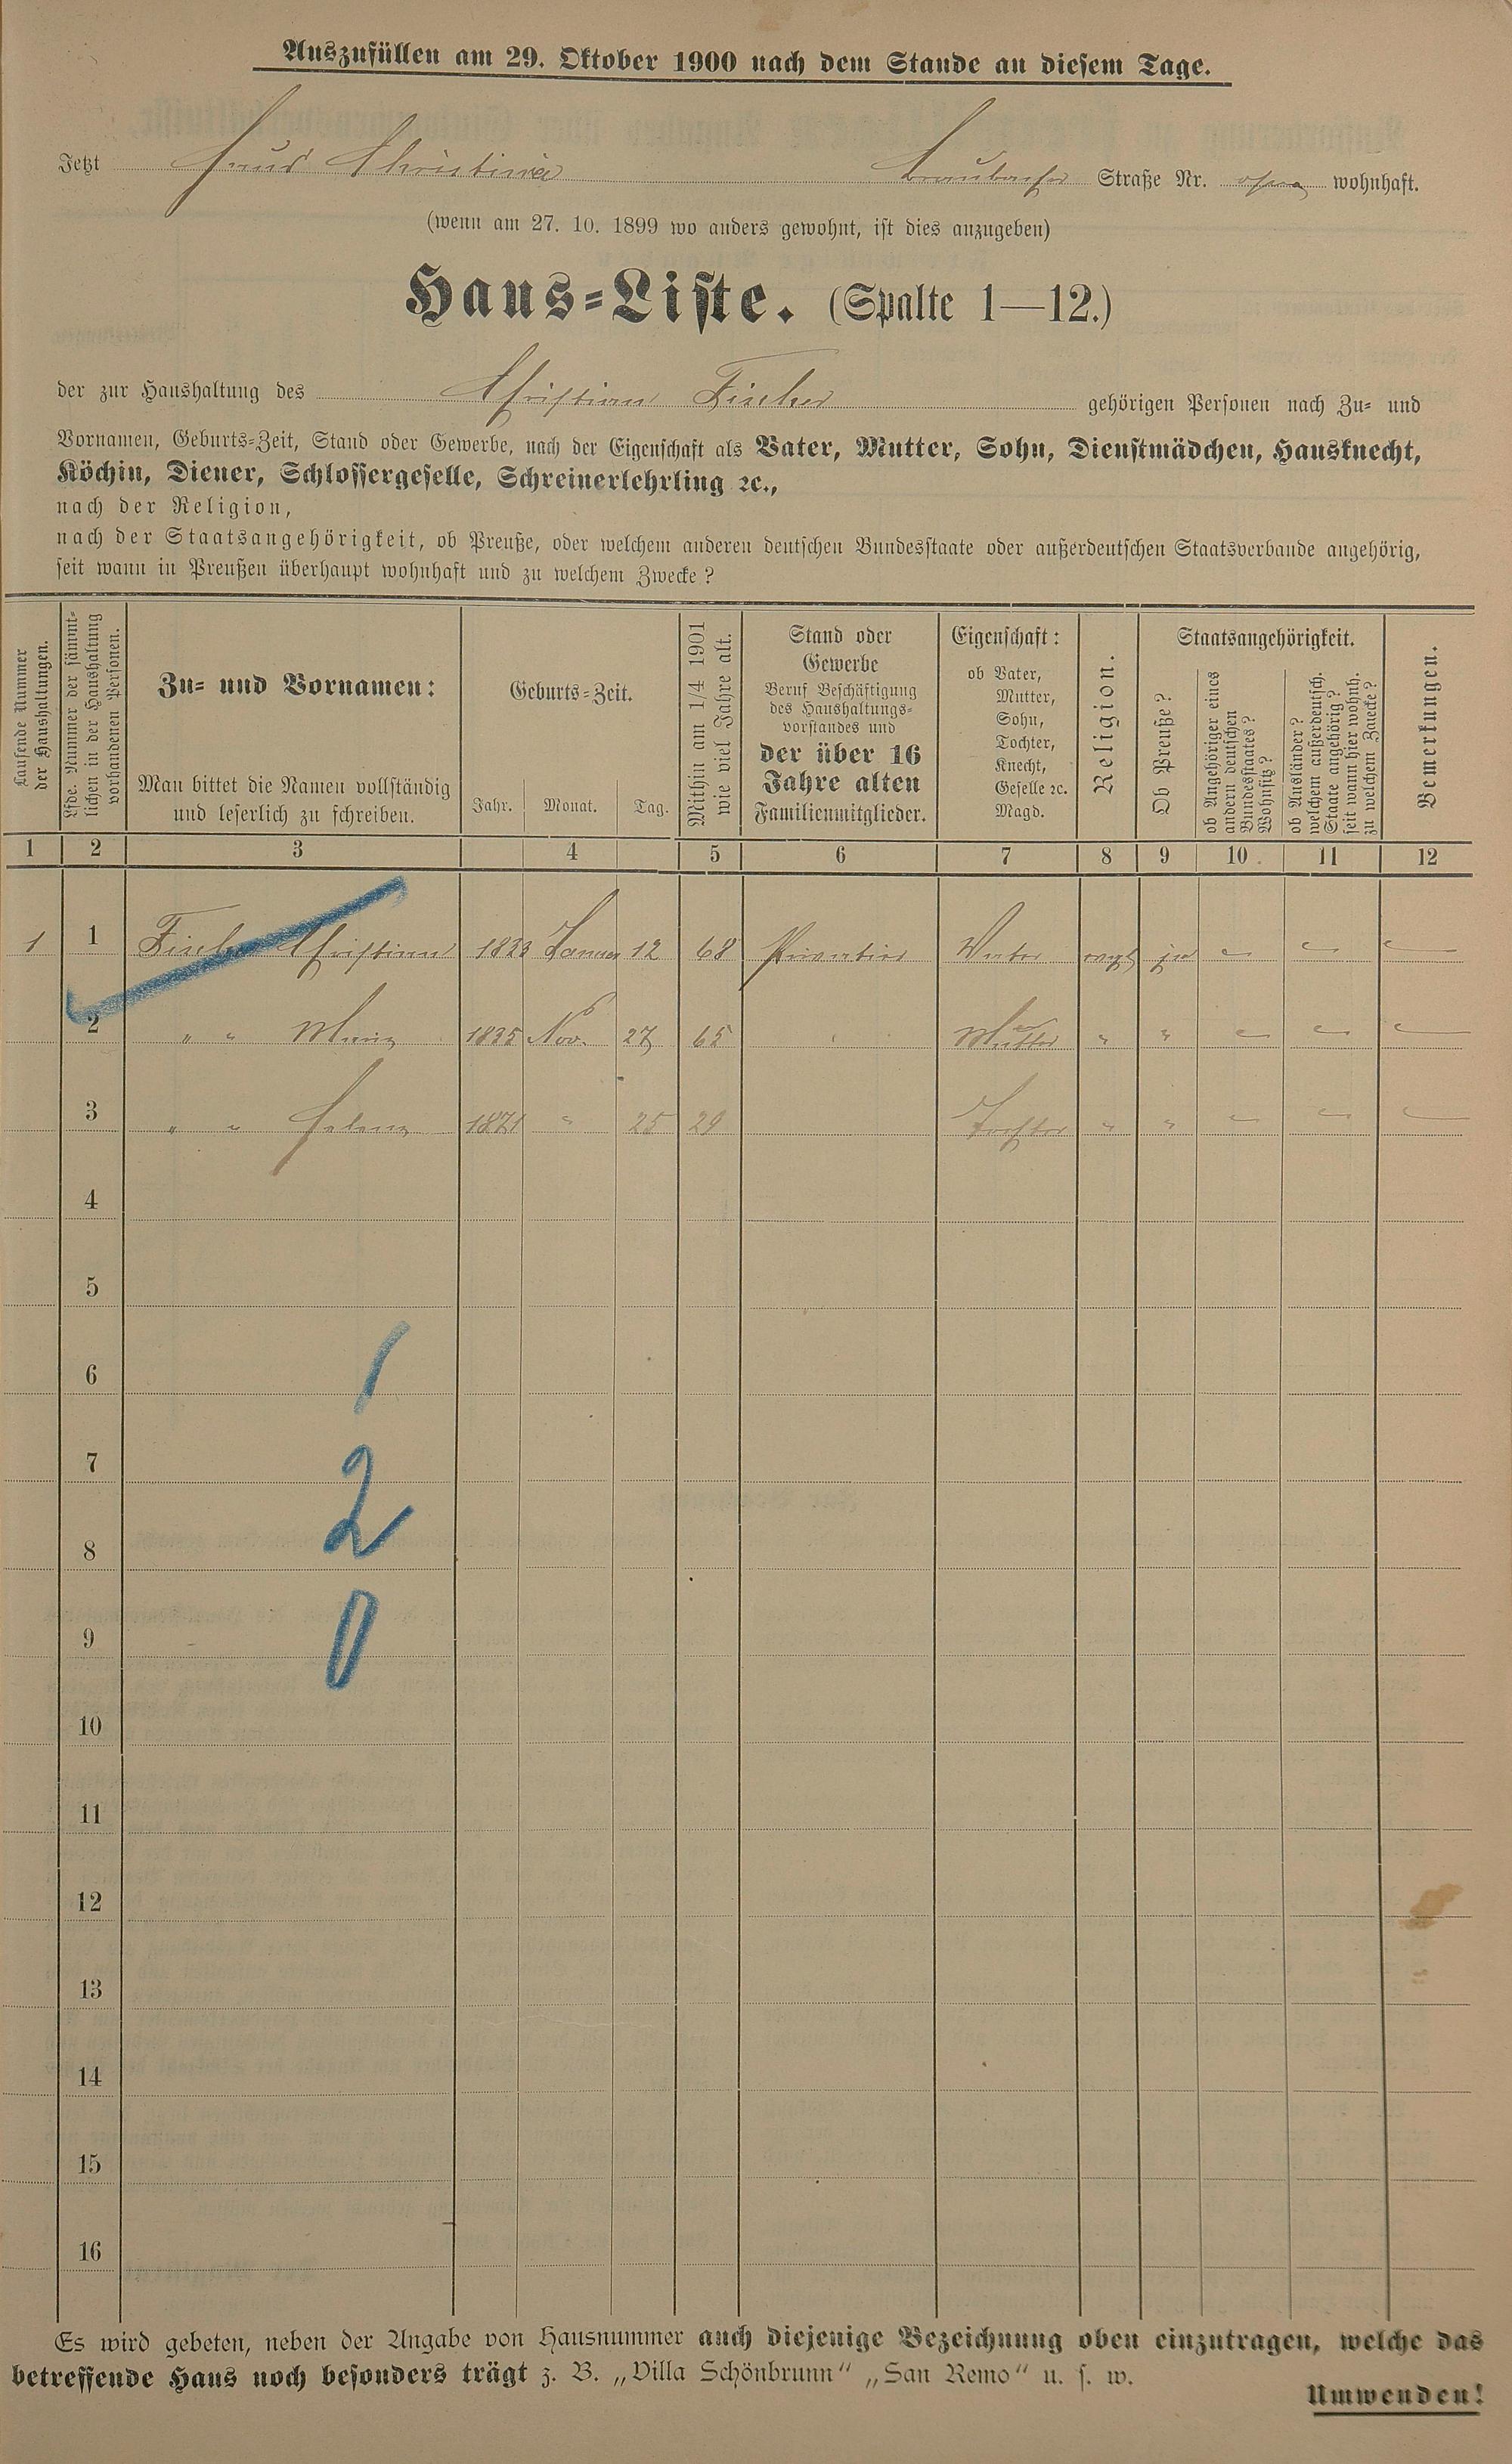 Auszufüllen am 29. Oktober 1900 nach dem Stande an diesem Tage.
Jetzt Haus Christina Braubacher Straße Nr. ohne wohnhaft.
(wenn am 27. 10. 1899 wo anders gewohnt, ist dies anzugeben)
Haus-Liste. (Spalte 1—12.)
der zur Haushaltung des Christian Fischer gehörigen Personen nach Zu- und
Vornamen, Geburts-Zeit, Stand oder Gewerbe, nach der Eigenschaft als Vater, Mutter, Sohn, Dienstmädchen, Hausknecht,
Köchin, Diener, Schlossergeselle, Schreinerlehrling ꝛc.,
nach der Religion,
nach der Staatsangehörigkeit, ob Preuße, oder welchem anderen deutschen Bundesstaate oder außerdeutschen Staatsverbande angehörig,
seit wann in Preußen überhaupt wohnhaft und zu welchem Zwecke?
Laufende Nummer
der Haushaltungen.
Lfde. Nummer der sämmt-
lichen in der Haushaltung
vorhandenen Personen.
Zu- und Vornamen:
Man bittet die Namen vollständig
und leserlich zu schreiben.
Geburts-Zeit.
Jahr. Monat. Tag.
Mithin am 1/4 1901
wie viel Jahre alt.
Stand oder
Gewerbe
Beruf Beschäftigung
des Haushaltungs-
vorstandes und
der über 16
Jahre alten
Familienmitglieder.
Eigenschaft:
ob Vater,
Mutter,
Sohn,
Tochter,
Knecht,
Geselle ꝛc.
Magd.
Religion.
Staatsangehörigkeit.
Ob Preuße?
ob Angehöriger eines
andern deutschen
Bundesstaates?
Wohnsitz?
ob Ausländer?
welchem außerdeutsch.
Staate angehörig?
seit wann hier wohnh.
zu welchem Zwecke?
Bemerkungen.
1 2 3 4 5 6 7 8 9 10. 11 12
1 1 Fischer Christian Januar 12 68 Privatier Vater evgl ja
2 " " Maria 1835 Nov. 27 65 Mutter " "
3 " " Helena 1871 " 25 29 Tochter " "
4
5
6
1
7
2
8
9
0
10
11
12
13
14
15
16
Es wird gebeten, neben der Angabe von Hausnummer auch diejenige Bezeichnung oben einzutragen, welche das
betreffende Haus noch besonders trägt z. B. „Villa Schönbrunn" „San Remo" u. s. w.
Umwenden!